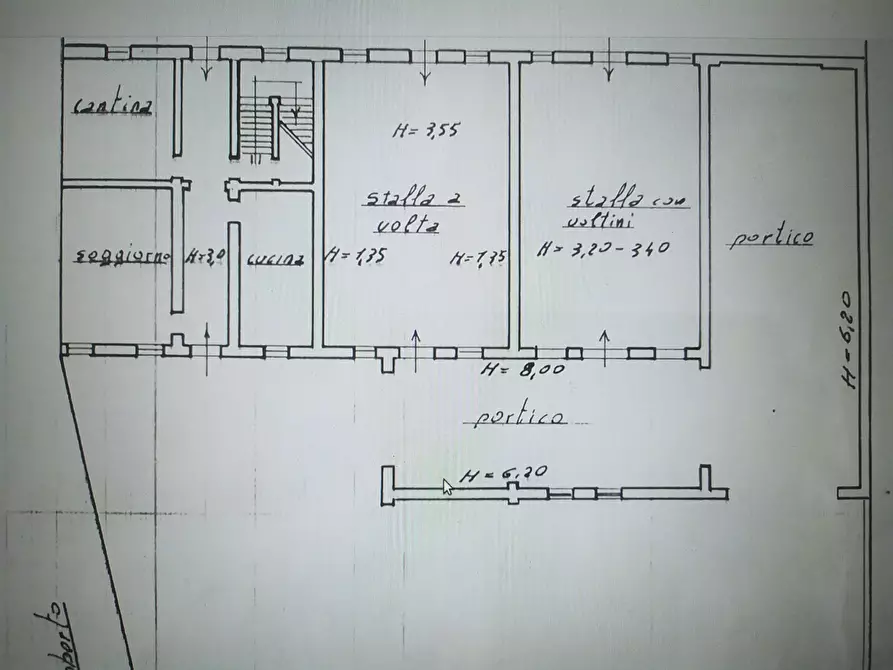 cantina
H = 3,55
stalla a
volta
stalla con
voltini
soggiorno
H=3,0
cucina
H = 1,35
H = 1,35
H = 3,20 - 340
portico
H = 6,20
H = 8,00
portico
H = 6,20